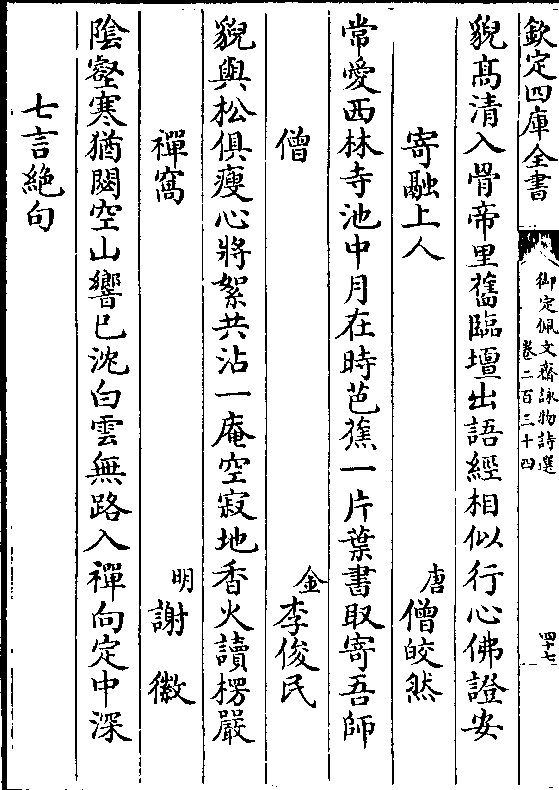 欽定四庫全書
御定佩文齋詠物詩選
卷二百三十四
四十七
貌髙清入骨帝里舊臨壇出語經相似行心佛證安
寄融上人
唐 僧皎然
常愛西林寺池中月在時芭蕉一片葉書取寄吾師
僧
金 李俊民
貌與松俱瘦心將絮共沾一庵空寂地香火讀楞嚴
禪窩
明 謝徽
陰壑寒猶閟空山響已沈白雲無路入禪向定中深
七言絶句